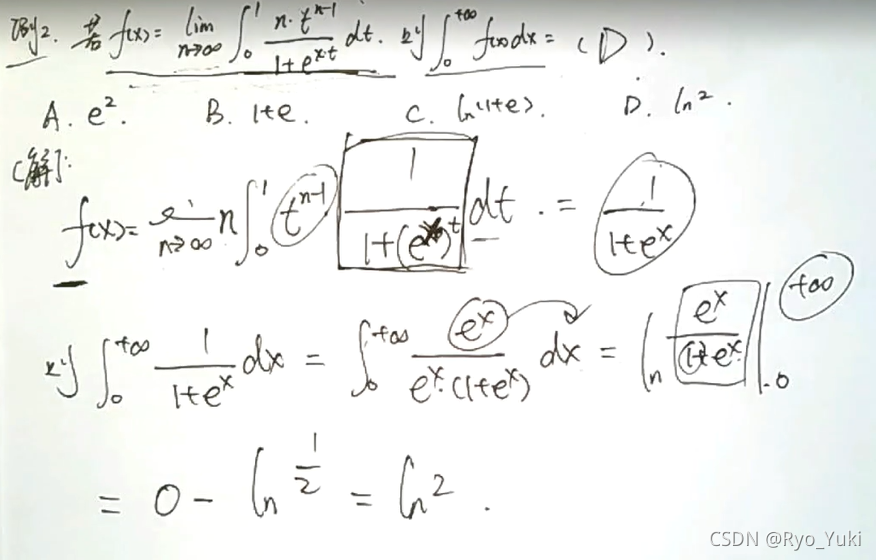 例2. 若 f(x)= lim n→∞ ∫₀¹ n·tⁿ⁻¹/(1+eˣᵗ) dt. 则 ∫₀^{+∞} f(x)dx = (D).
A. e². B. 1+e. C. ln(1+e). D. ln2.
[解]:
f(x)= lim n→∞ n∫₀¹ tⁿ⁻¹ 1/(1+(eˣ)ᵗ) dt. = 1/(1+eˣ)
则 ∫₀^{+∞} 1/(1+eˣ) dx = ∫₀^{+∞} eˣ/(eˣ·(1+eˣ)) dx = ln eˣ/(1+eˣ) |₀^{+∞}
= 0 - ln 1/2 = ln2.
CSDN @Ryo_Yuki